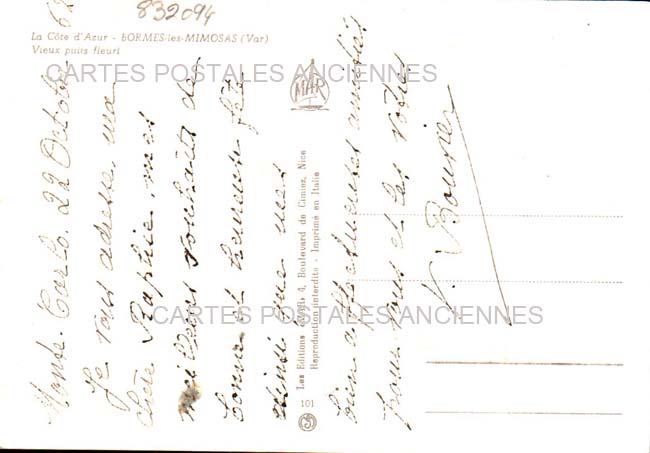 832094
La Côte d'Azur - BORMES-les-MIMOSAS (Var)
Vieux puits fleuri
CARTES POSTALES ANCIENNES
MAR
Monte-Carlo. 22 Octobre 62
Je vous adresse ma
chère Sophie, mes
meilleurs souhaits de
bonne et heureuse fête
ainsi que mes
bien affectueuses amitiés
pour vous et les vôtres
V. Bouvier
Les Editions 4, Boulevard de Cimiez, Nice
Reproduction interdite - Imprimé en Italie
101
CARTES POSTALES ANCIENNES